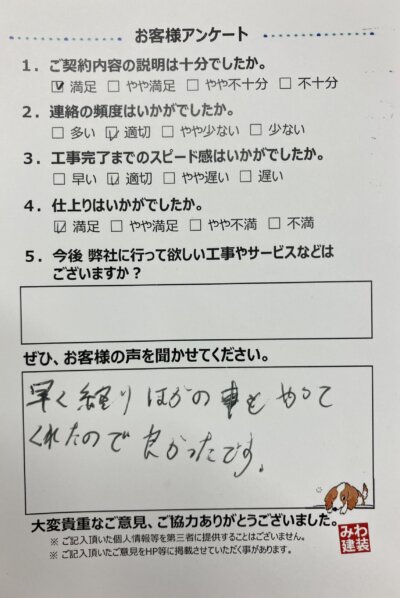 お客様アンケート
1．ご契約内容の説明は十分でしたか。
☑ 満足 □ やや満足 □ やや不十分 □ 不十分
2．連絡の頻度はいかがでしたか。
□ 多い ☑ 適切 □ やや少ない □ 少ない
3．工事完了までのスピード感はいかがでしたか。
□ 早い ☑ 適切 □ やや遅い □ 遅い
4．仕上りはいかがでしたか。
☑ 満足 □ やや満足 □ やや不満 □ 不満
5．今後 弊社に行って欲しい工事やサービスなどは
ございますか？
ぜひ、お客様の声を聞かせてください。
早く終り ほかの事も やって
くれたので 良かったです。
大変貴重なご意見、ご協力ありがとうございました。
※ ご記入頂いた個人情報等を第三者に提供することはございません。
※ ご記入頂いたご意見をHP等に掲載させていただく事があります。
みわ
建装